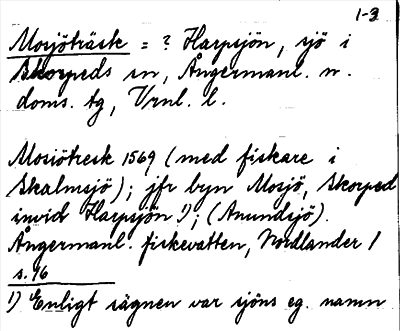 1-3
Mosjöträsk = ? Harpsjön, sjö i
Skorpeds sn, Ångermanl. n.
doms. tg, Vrnl. l.
Mosiötresk 1569 (med fiskare i
Skalmsjö); jfr byn Mosjö, Skorped
invid Harpsjön ¹); (Anundsjö).
Ångermanl. fiskevatten, Nordlander /
s. 16
¹) Enligt sägnen var sjöns eg. namn